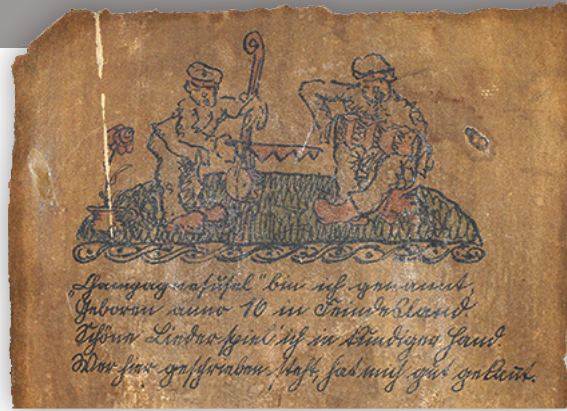 bin ich genannt,
Geboren anno 16 in Feindesland
Schöne Lieder spiel' ich in kundiger Hand.
Wer hier geschrieben steht, hat mich gut gekan̄t.